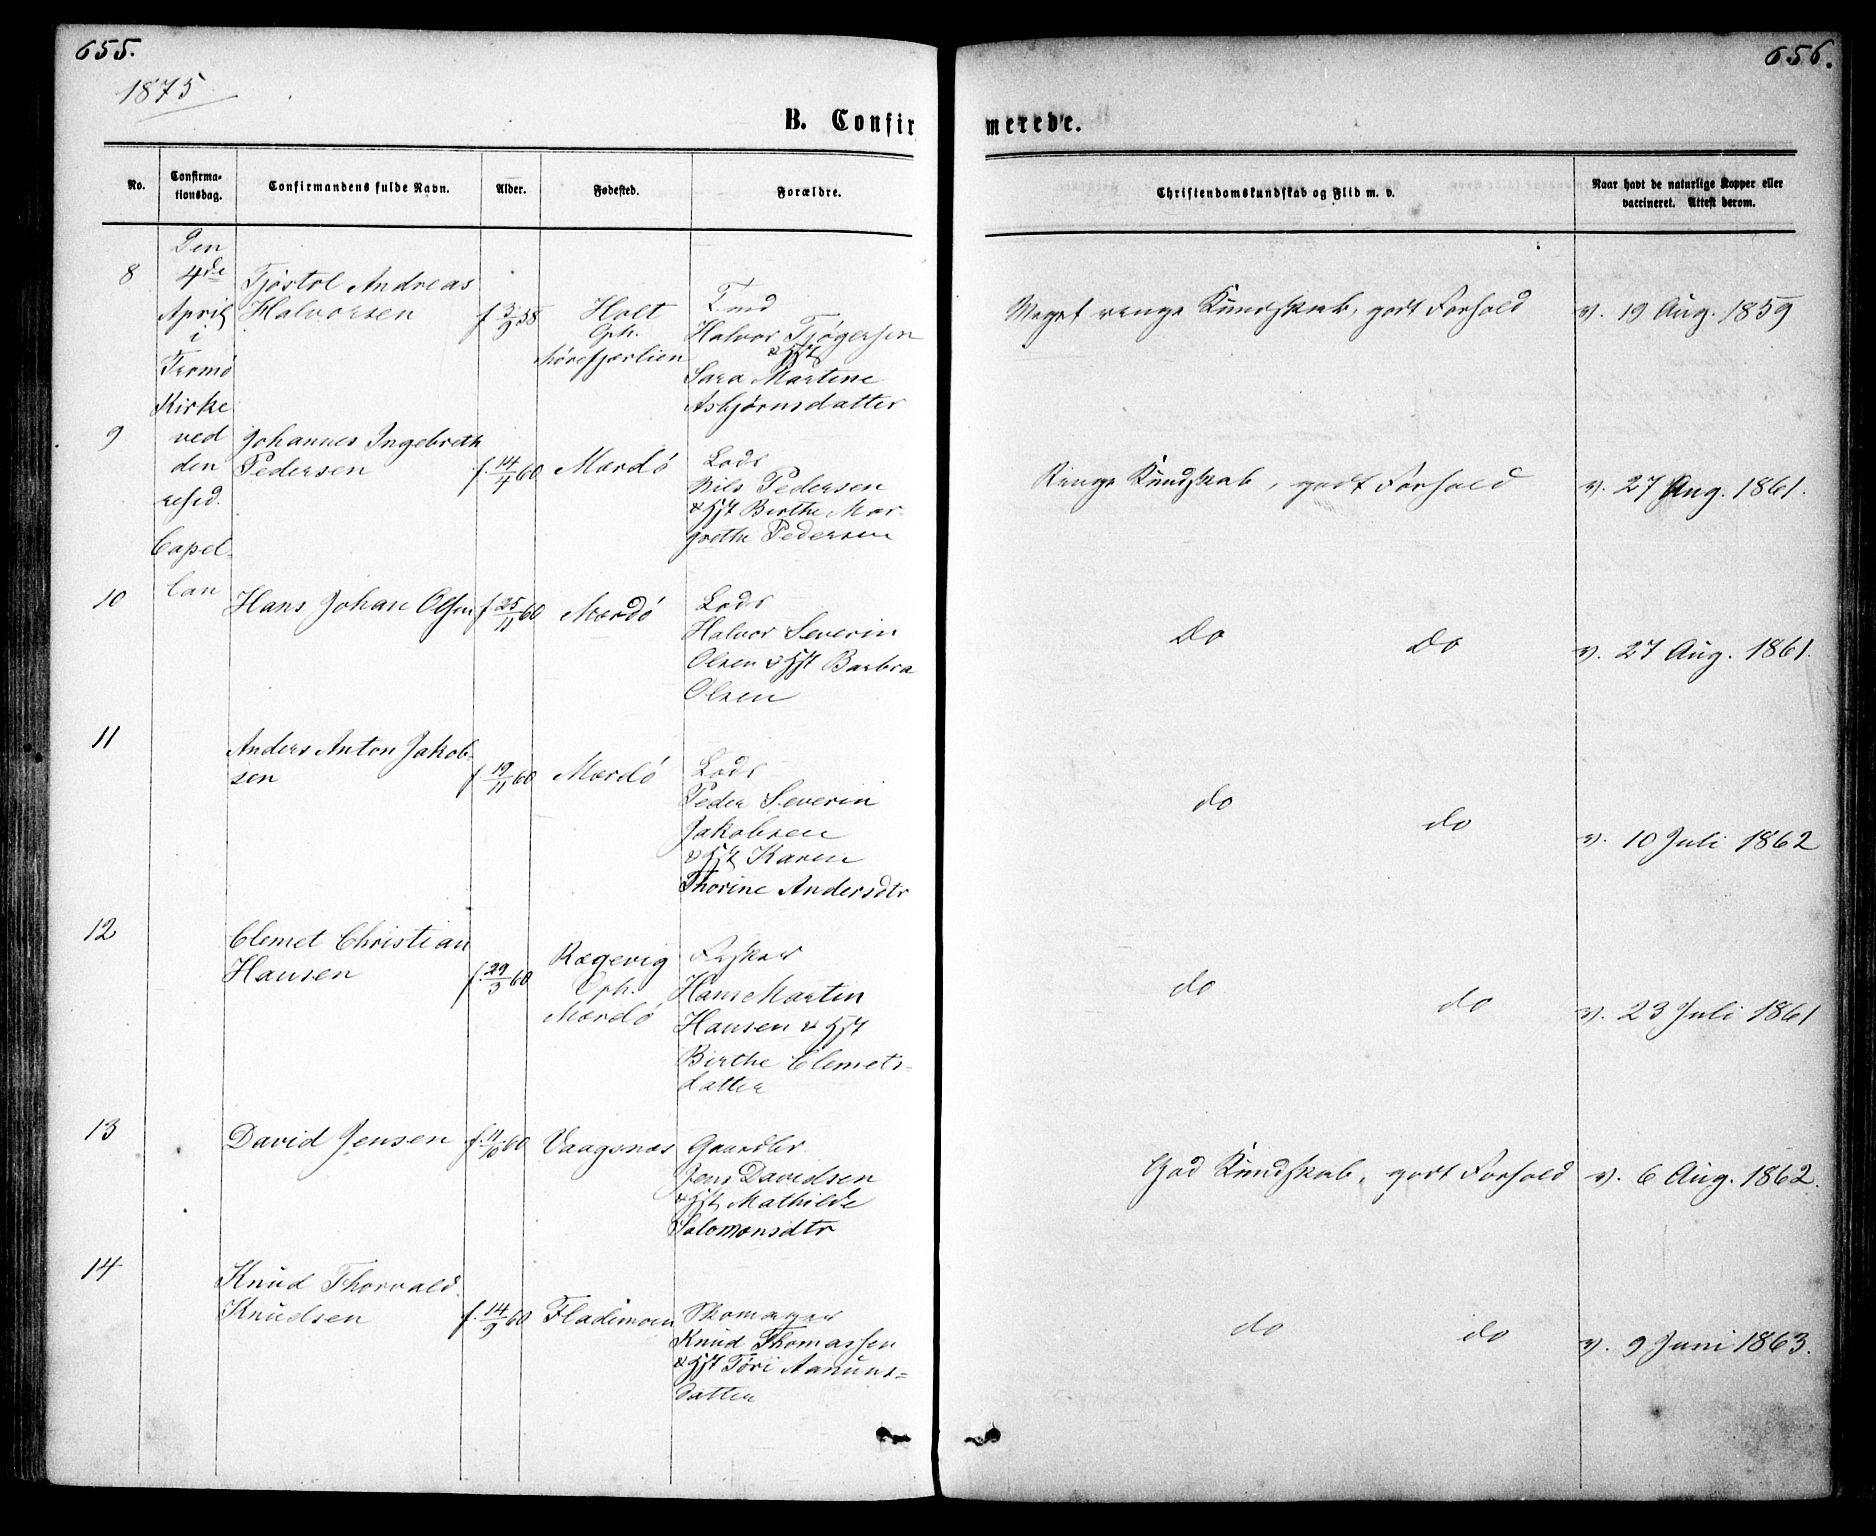 655.
656.
1875
B. Confirmerede.
No.
Confirmationsdag.
Confirmandens fulde Navn.
Alder.
Fødested.
Forældre.
Christendomskundskab og Flid m. v.
Naar havt de naturlige Kopper eller
vaccineret. Attest derom.
Den
4de
April
i
Tromø
Kirke
ved
den
resid.
Capel-
lan
8
Tjøstol Andreas
Halvorsen
f. 3/9 58
Holt
Oph.
Lmd
Halvor Tjøgersen
& Hst
Sara Martine
Asbjørnsdatter
Meget ringe Kundskab, godt Forhold
v. 19 Aug. 1859
9
Johannes Ingebreth
Pedersen
f. 14/4 60
Mærdø
Lods
Nils Pedersen
& Hst Birthe Mar-
grethe Pedersen
Ringe Kundskab, godt Forhold
v. 27 Aug. 1861.
10
Hans Johan Olsen
f. 25/11 60
Mærdø
Lods
Halvor Severin
Olsen & Hst Barbra
Olsen
Do Do
v. 27 Aug. 1861.
11
Anders Anton Jakob-
sen
f. 19/11 60
Mærdø
Lods
Peder Severin
Jakobsen
& Hst Karen
Thorine Andersdtr
do do
v. 10 Juli 1862
12
Clemet Christian
Hansen
f. 29/3 60
Rægevig
Oph.
Mærdø
Fisker
Hans Martin
Hansen & Hst
Birthe Clemets-
datter
do do
v. 23 Juli 1861
13
David Jensen
f. 11/10 60
Vaagsnæs
Gaardbr
Jens Davidsen
& Hst Mathilde
Salomonsdtr
God Kundskab, godt Forhold
v. 6 Aug. 1862.
14
Knud Thorvald
Knudsen
f. 14/9 60
Fladimoen
Skomager
Knud Thomassen
& Hst Tøri Aanuns-
datter
do do
v. 9 Juni 1863.